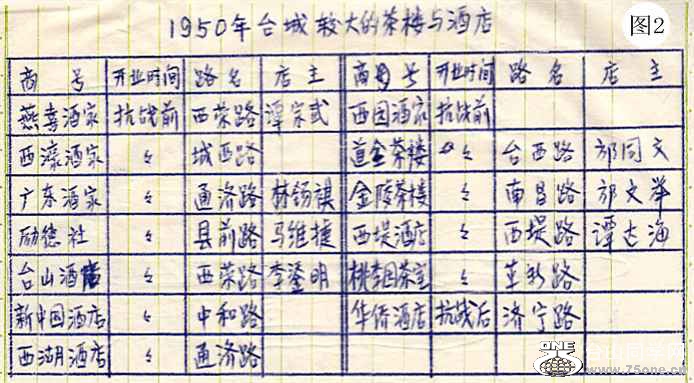 1950年台城较大的茶楼与酒店
图2
商号 开业时间 路名 店主 商号 开业时间 路名 店主
燕喜酒家 抗战前 西荣路 谭宗式 西园酒家 抗战前
西濠酒家 〃 城西路 道全茶楼 〃 台西路 邝同文
广东酒家 〃 通济路 林锡祺 金陵茶楼 〃 南昌路 邝文举
励德社 〃 县前路 马维捷 西堤酒店 〃 西堤路 谭达海
台山酒店 〃 西荣路 李鎏明 桃李园茶室 〃 革新路
新中国酒店 〃 中和路 华侨酒店 抗战后 济宁路
西湖酒店 〃 通济路
ONE
www.75one.cn